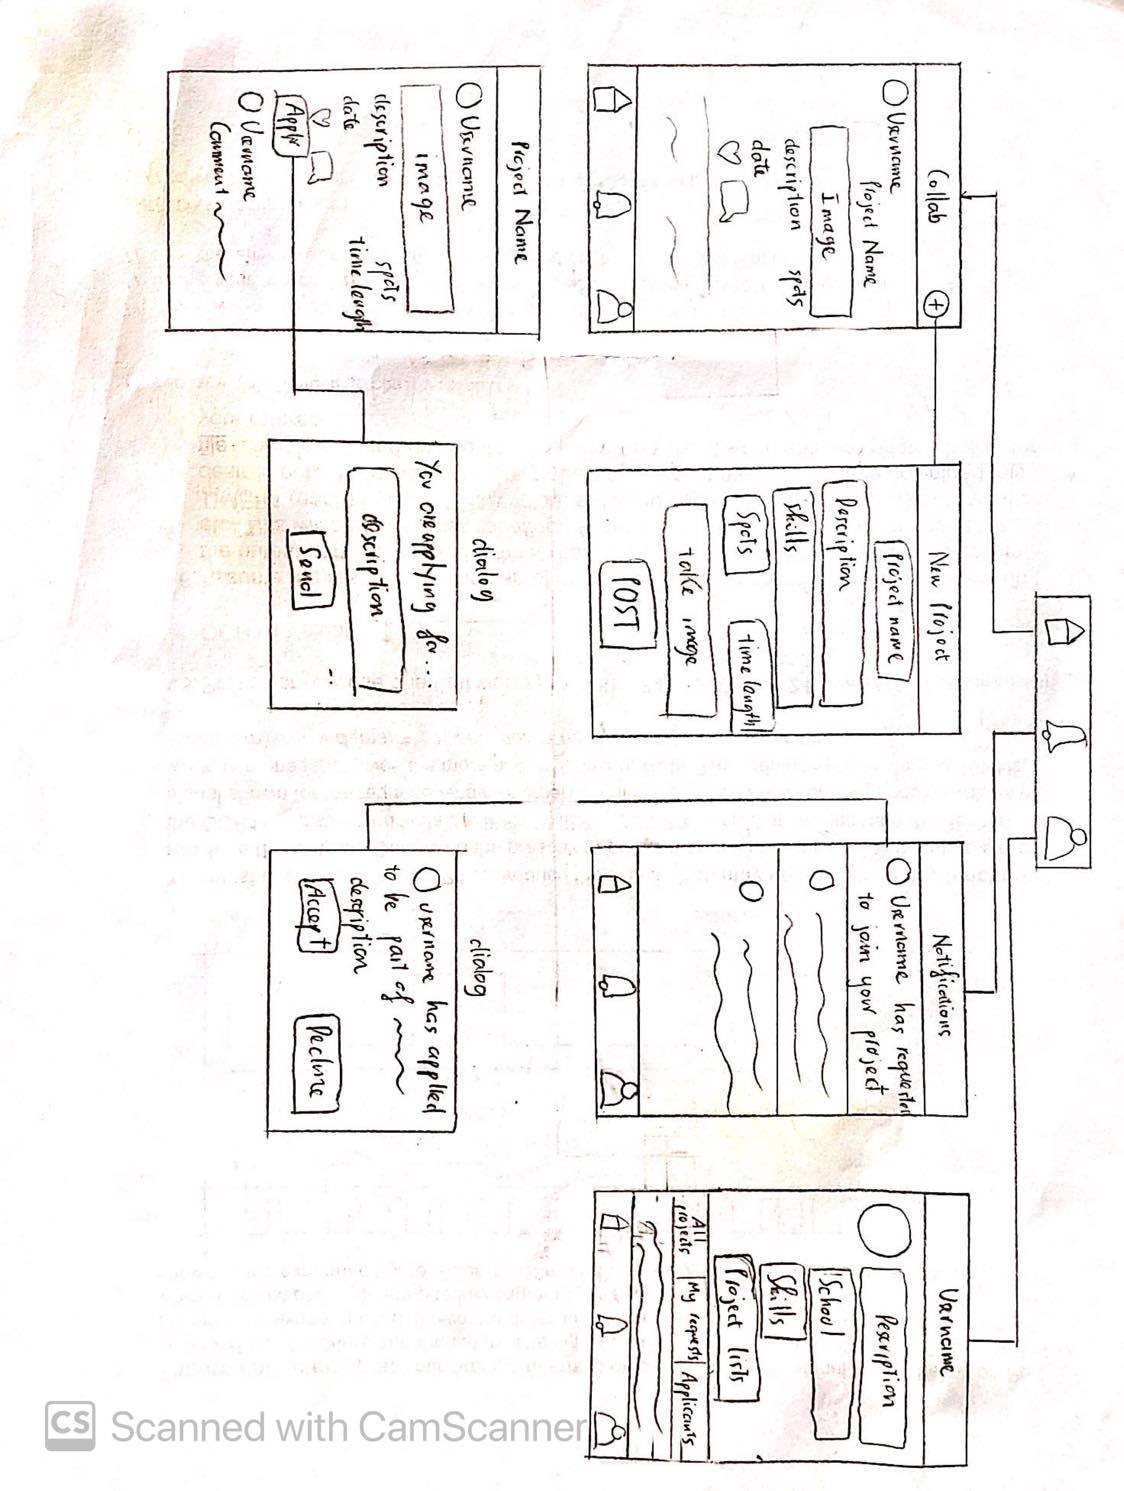 Collab +
Username
Project Name
Image
description spots
date
New Project
Project name
Description
Skills
Spots time length
take image
POST
Notifications
Username has requested
to join your project
Username
Description
School
Skills
Project lists
All projects My requests Applicants
Project Name
Username
image
description spots
date time length
Apply
Username
Comment
dialog
You are applying for...
description
Send
dialog
username has applied
to be part of
description
Accept Decline
CS Scanned with CamScanner